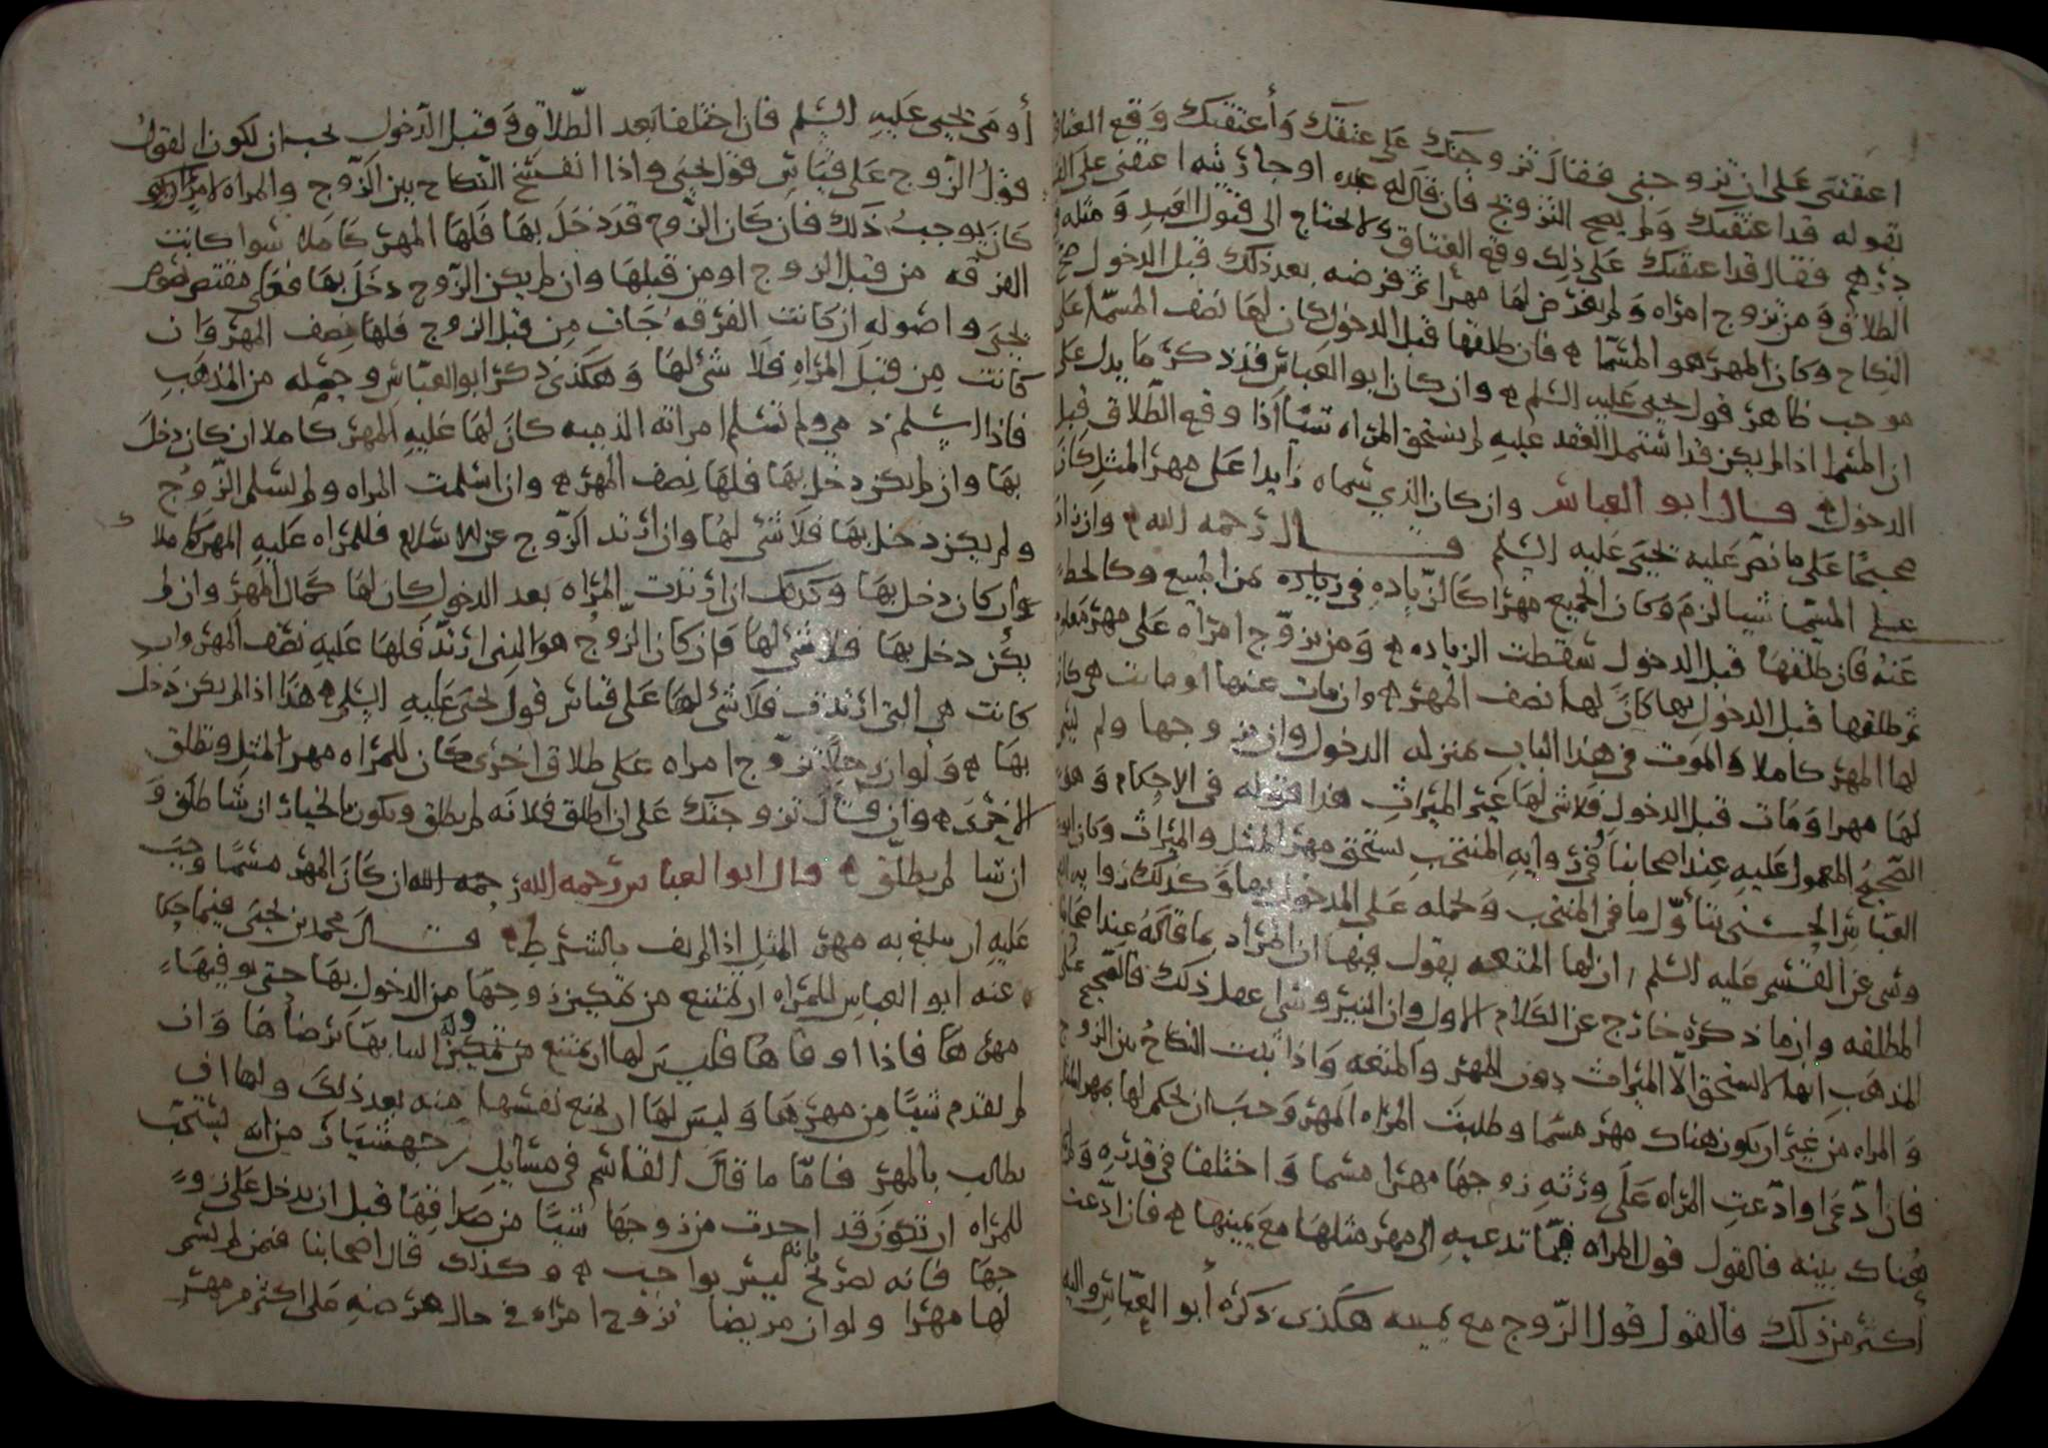 اعتقتنى على ان تزوجنى فقال تزوجتك على عتقك وأعتقتك وقع العتاق
بقوله قد اعتقتك ولم يصح التزويج فان قال له عبده او جاريته اعتقنى على الف
درهم فقال قد اعتقتك على ذلك وقع العتاق ولا يحتاج الى قبول العبد ومثله فى
الطلاق ومن تزوج امراه ولم يفرض لها مهرا ثم فرضه بعد ذلك قبل الدخول صح
النكاح وكان المهر هو المسمّا فان طلقها قبل الدخول كان لها نصف المسمّا على
موجب ظاهر قول يحيى عليه السلم وان كان ابو العباس قد ذكر ما يدل على
ان المسما اذا لم يكن قد اشتمل العقد عليه لم تستحق المراه شيّا اذا وقع الطلاق قبل
الدخول قال ابو العباس وان كان الذي سماه زايدا على مهر المثل كان
صحيحًا على ما نص عليه يحيى عليه السلم قال رحمه الله وان زاد
على المسمّا شيا لزم وكان الجميع مهرا كالزياده فى من المبيع وكالحط
عنه فان طلقها قبل الدخول سقطت الزياده ومن تزوّج امرأه على مهر معلوم
ثم طلقها قبل الدخول بها كان لها نصف المهر وان مات عنها او ماتت هى كان
لها المهر كاملا والموت فى هذا الباب بمنزله الدخول وان تزوجها ولم يسم
لها مهرا ومات قبل الدخول فلا شى لها غير الميراث هذا قوله فى الاحكام وهو
الصحيح المعمول عليه عند اصحابنا وفى روايه المنتخب تستحق مهر المثل والميراث وكان ابو
العباس الحسنى يتأوّل ما فى المنتخب ويحمله على المدخول بها وكذلك
وشى عن القسم عليه السلم ان لها المتعه يقول فيها ان المراد بما قاله عند اصحابنا
المطلقه وان ما ذكره خارج عن الكلام الاول وان النيروسى عمل ذلك فالصحيح على
المذهب انها لا تستحق الا الميراث دون المهر والمتعه واذا ثبت النكاح بين الزوج
والمراه من غير ان يكون هناك مهر مسمّا وطلبت المراه المهر وجب ان يحكم لها بمهر المثل
فان ادّعى او ادّعت المراه على ورثه زوجها مهرا مسما واختلفا فى قدره ولم
هناك بينه فالقول قول المراه فيما تدعيه الى مهر مثلها مع يمينها فان ادّعت
اكثر من ذلك فالقول قول الزّوج مع يمينه هكذى ذكره أبو العبّاس واليه
أومى يحيى عليه السلم فان اختلفا بعد الطّلاق وقبل الدّخول يجب ان يكون القول
قول الزّوج على قياس قول يحيى واذا انفسخ النكاح بين الزّوج والمراه لامر
كان يوجب ذلك فان كان الزّوج قد دخل بها فلها المهر كاملا سوا كانت
الفرقه من قبل الزوج او من قبلها وان لم يكن الزّوج دخل بها فعلى مقتضى نصوص
يحيى واصوله ان كانت الفرقه جات من قبل الزوج فلها نصف المهر وان
كانت من قبل المراه فلا شى لها وهكذى ذكر ابو العباس وجعله من المذهب
فاذا اسلم ذمي ولم تسلم امراته الذميه كان لها عليه المهر كاملا ان كان دخل
بها وان لم يكن دخل بها فلها نصف المهر وان اسلمت المراه ولم يسلم الزّوج
ولم يكن دخل بها فلا شى لها وان ارتد الزّوج عن الاسلام فللمراه عليه المهر كاملا
وان كان دخل بها وكذلك ان ارتدت المراه بعد الدخول كان لها كمال المهر وان لم
يكن دخل بها فلا شى لها فان كان الزوج هو الذي ارتدّ فلها عليه نصف المهر وان
كانت هى التى ارتدت فلا شى لها على قياس قول يحيى عليه السلم هذا اذا لم يكن دخل
بها ولو ان رجلا تزوّج امراه على طلاق اخرى كان للمراه مهر المثل وتطلق
الاخرى وان قال تزوجتك على ان اطلق فلانه لم تطلق ويكون بالخيار ان شا طلق و
ان شا لم يطلق قال ابو العباس رحمه الله ان كان المهر مسمّا وجب
عليه ان يبلغ به مهر المثل اذا لم يف بالشرط قال محمد بن يحيى فيما حكا
عنه ابو العباس للمراه ان تمتنع من تمكين زوجها من الدخول بها حتى يوفيها
مهرها فاذا اوفاها فليس لها ان تمتنع من تمكينه وله البنا بها برضاها وان
لم يقدم شيّا من مهرها وليس لها ان تمنع نفسها منه بعد ذلك ولها ان
تطالب بالمهر فامّا ما قال القاسم فى مسايل جهشيار من انه يستحب
للمراه ان تكون قد اخذت من زوجها شيّا من صداقها قبل ان يدخل على زو
جها فانه تصريح بانه ليس بواجب وكذلك قال اصحابنا فيمن لم يسم
لها مهرا ولو ان مريضا تزوج امراه فى حال مرضه على اكثر من مهر